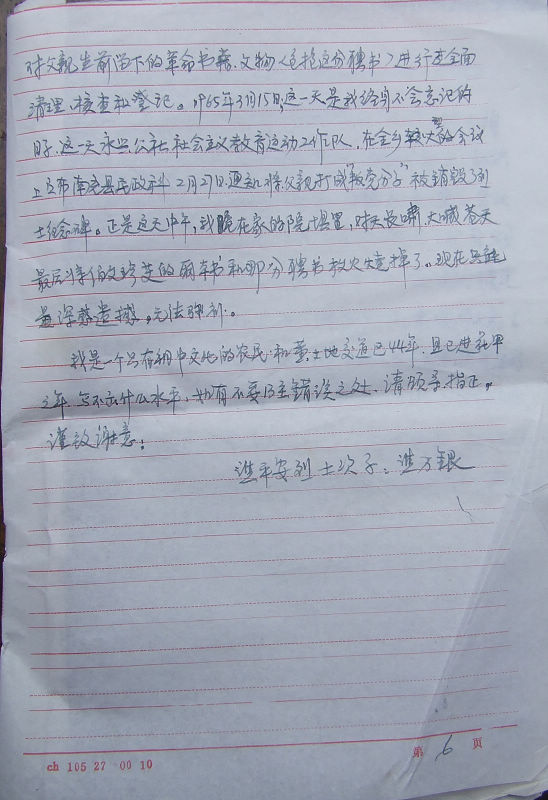 对父亲生前留下的革命书籍、文物《包括这份聘书》进行了全面
清理、核查和登记。1965年3月15日,这一天是我终身不会忘记的
日子,这一天永兴公社社会主义教育运动工作队,在全乡群众会议
上宣布南充县民政科2月27日通知将父亲打成"叛党分子"被销毁了烈
士纪念碑。正是这天中午,我跪在家的院坝里,对天长啸,大喊苍天
最后将伯父珍芝的两本书和那份聘书放火烧掉了。现在只能
是深感遗憾,无法弥补。
我是一个只有初中文化的农民,和黄土地交道已44年,且已进花甲
之年,写不出什么水平,如有不妥乃至错误之处,请领导指正。
谨致谢意!
平安烈士次子:万银
第 6 页
ch 105 27 00 10